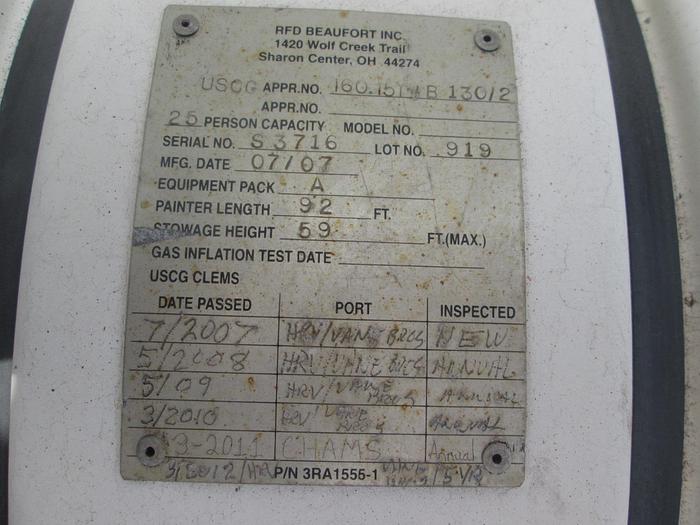 RFD BEAUFORT INC.
1420 Wolf Creek Trail
Sharon Center, OH 44274
USCG APPR.NO. 160.151 B 130/2
APPR.NO.
25 PERSON CAPACITY MODEL NO.
SERIAL NO. S3716 LOT NO. 919
MFG. DATE 07/07
EQUIPMENT PACK A
PAINTER LENGTH 92 FT.
STOWAGE HEIGHT 59 FT.(MAX.)
GAS INFLATION TEST DATE
USCG CLEMS
DATE PASSED PORT INSPECTED
7/2007 HRV/VANE BROS NEW
5/2008 HRV/VANE BROS ANNUAL
5/09 HRV/VANE BROS ANNUAL
3/2010 HRV VANE BROS ANNUAL
9-2011 CHAMS Annual
P/N 3RA1556-1